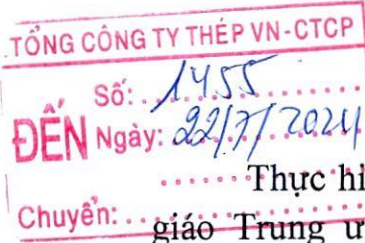 TỔNG CÔNG TY THÉP VN-CTCP
Số: 1455
ĐẾN Ngày: 22/7/2024
Thực hi
Chuyển:
giáo Trung ư